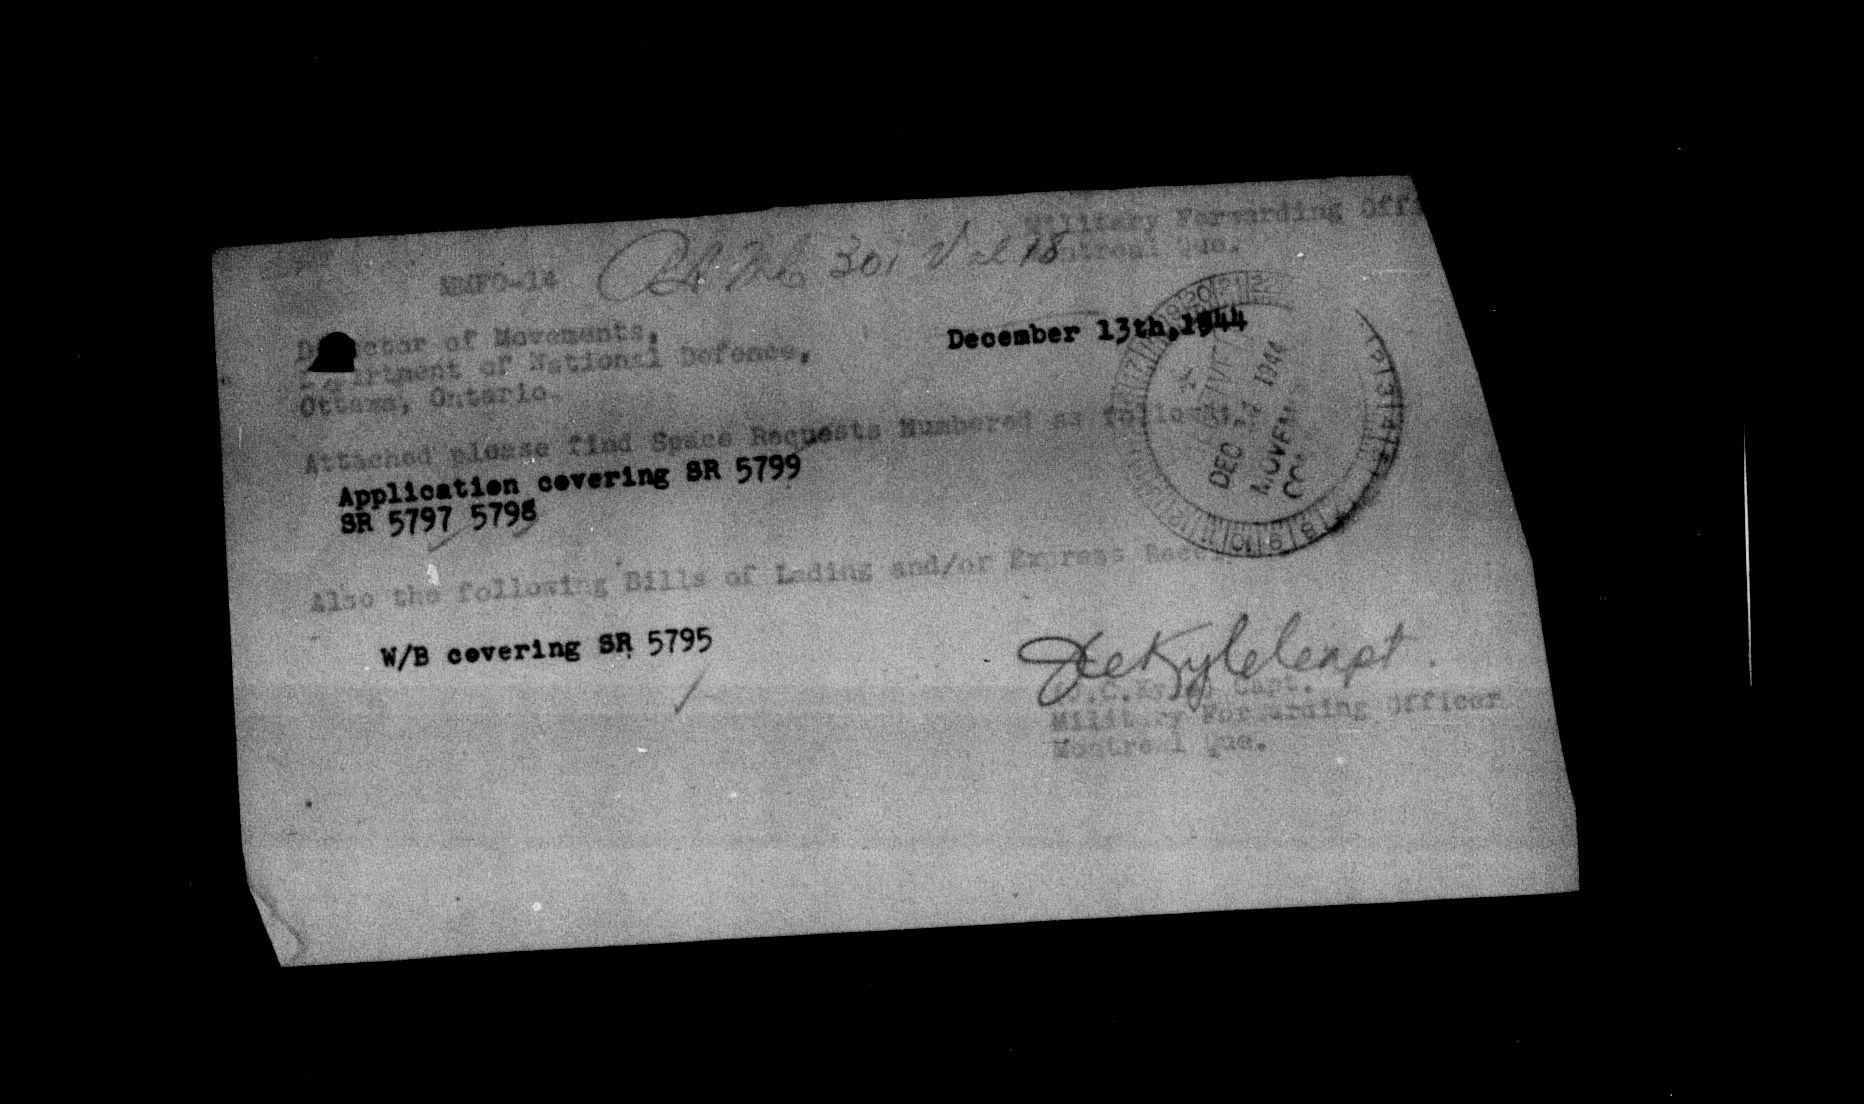 Military Forwarding Offi
Montreal Que.
301 Vol 18
MMFO-14
Director of Movements,
Department of National Defence,
Ottawa, Ontario.
December 13th,1944
DEC 1944
Attached please find Space Requests Numbered as follows:
Application covering SR 5799
SR 5797 5798
Also the following Bills of Lading and/or Express
W/B covering SR 5795
J.C.Kyle Capt.
(J.C.Kyle) Capt.
Military Forwarding Officer
Montreal Que.